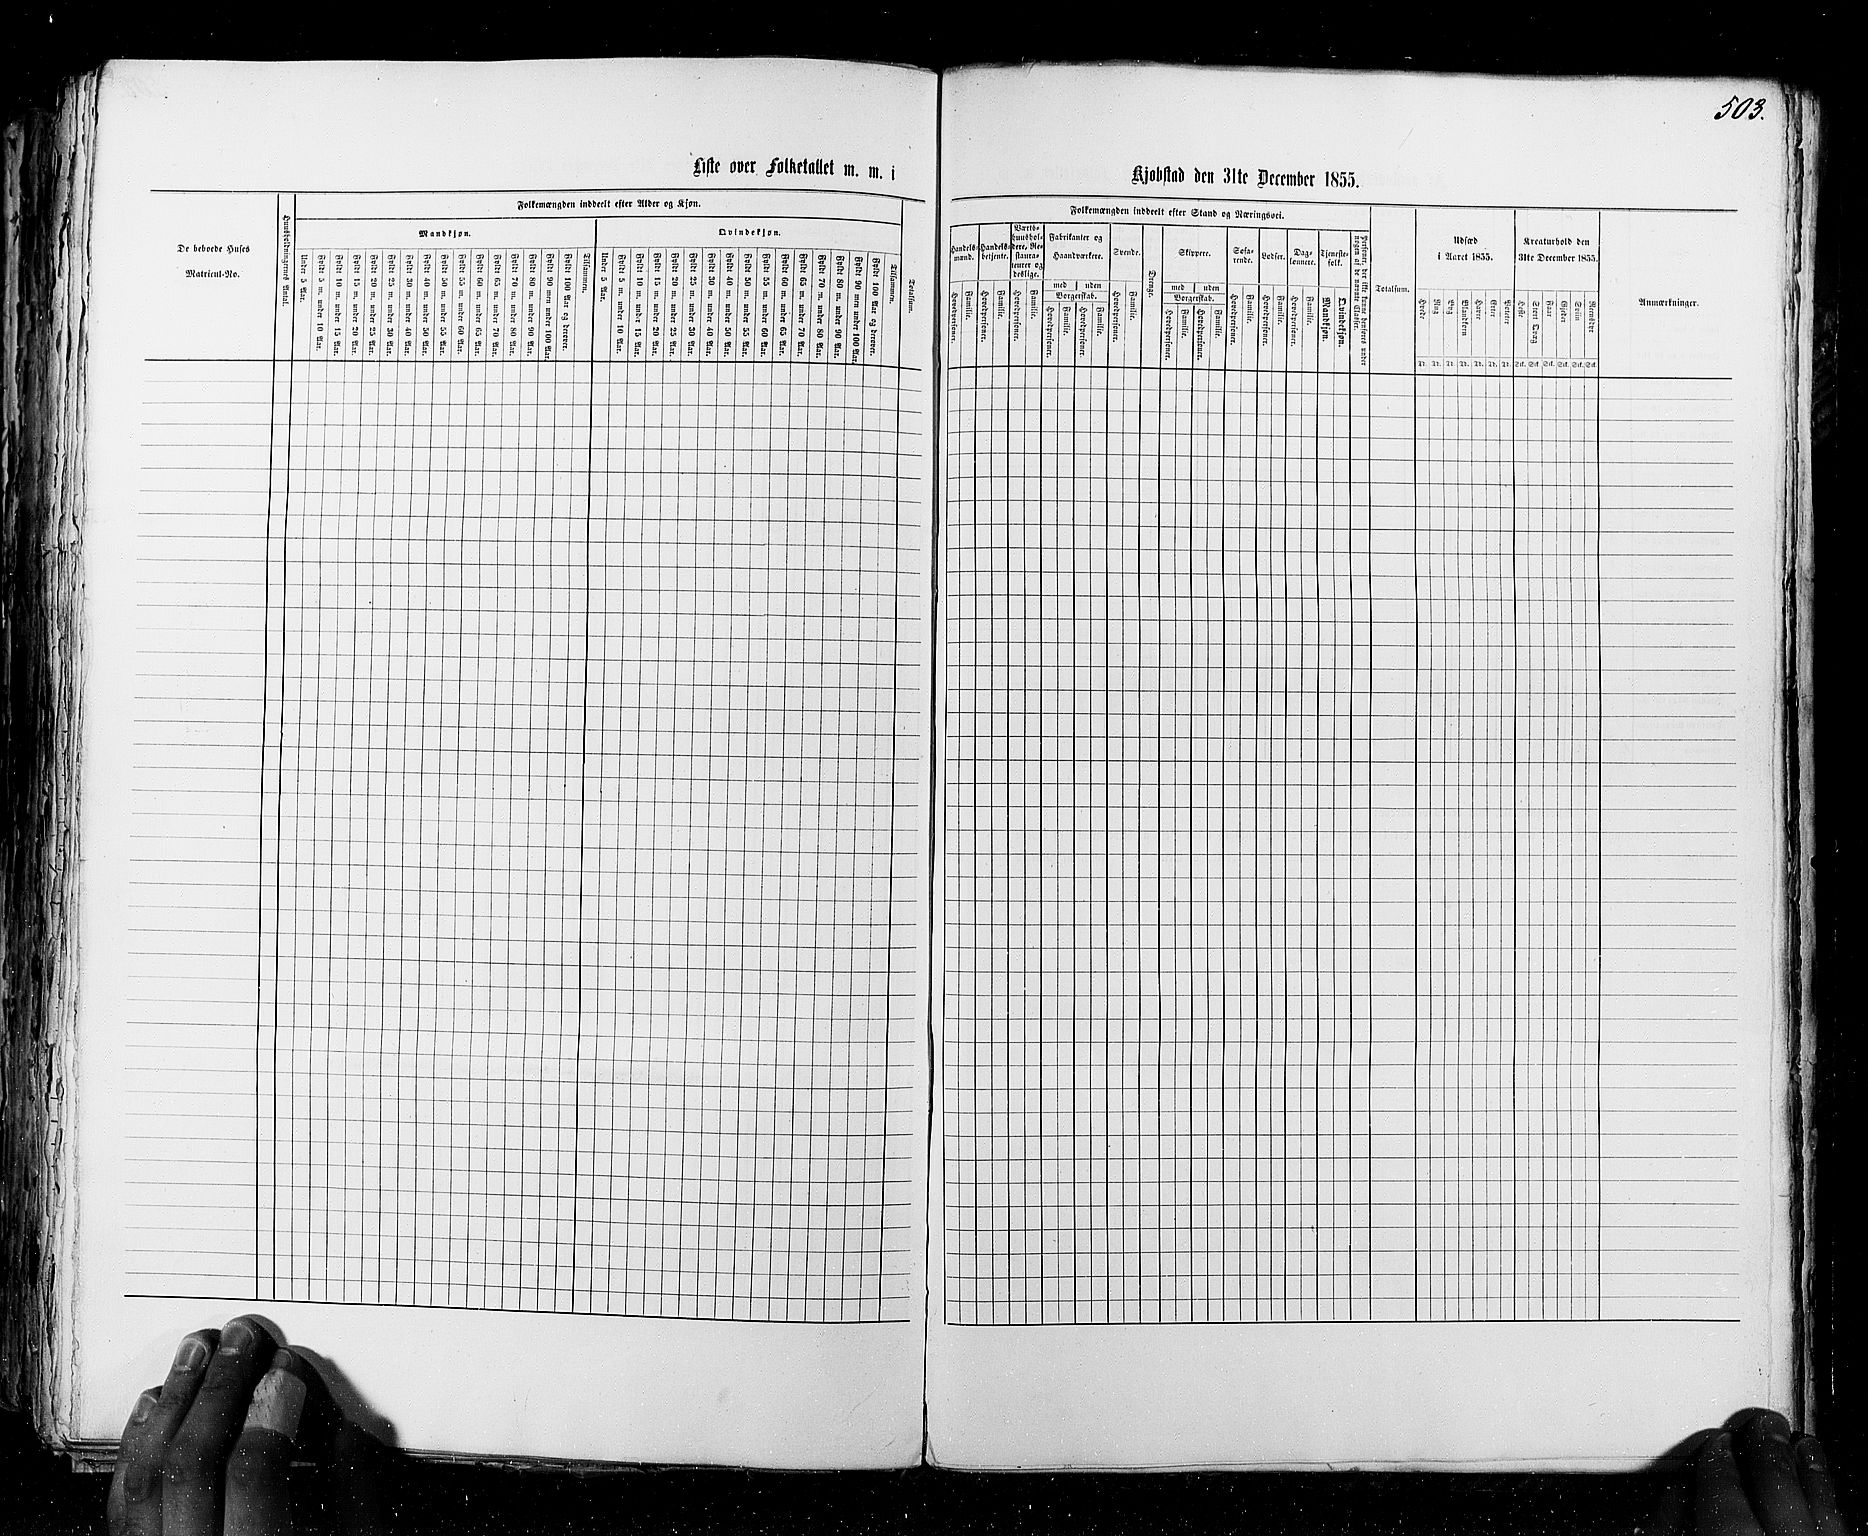 503.
Liste over Folketallet m. m. i
Kjøbstad den 31te December 1855.
De beboede Huses
Matricul-No.
Huusholdningernes Antal.
Folkemængden inddeelt efter Alder og Kjøn.
Mandkjøn.
Under 5 Aar.
Fyldt 5 m. under 10 Aar.
Fyldt 10 m. under 15 Aar.
Fyldt 15 m. under 20 Aar.
Fyldt 20 m. under 25 Aar.
Fyldt 25 m. under 30 Aar.
Fyldt 30 m. under 40 Aar.
Fyldt 40 m. under 50 Aar.
Fyldt 50 m. under 55 Aar.
Fyldt 55 m. under 60 Aar.
Fyldt 60 m. under 65 Aar.
Fyldt 65 m. under 70 Aar.
Fyldt 70 m. under 80 Aar.
Fyldt 80 m. under 90 Aar.
Fyldt 90 men under 100 Aar.
Fyldt 100 Aar og derover.
Tilsammen.
Qvindekjøn.
Under 5 Aar.
Fyldt 5 m. under 10 Aar.
Fyldt 10 m. under 15 Aar.
Fyldt 15 m. under 20 Aar.
Fyldt 20 m. under 25 Aar.
Fyldt 25 m. under 30 Aar.
Fyldt 30 m. under 40 Aar.
Fyldt 40 m. under 50 Aar.
Fyldt 50 m. under 55 Aar.
Fyldt 55 m. under 60 Aar.
Fyldt 60 m. under 65 Aar.
Fyldt 65 m. under 70 Aar.
Fyldt 70 m. under 80 Aar.
Fyldt 80 m. under 90 Aar.
Fyldt 90 men under 100 Aar.
Fyldt 100 Aar og derover.
Tilsammen.
Totalsum.
Folkemængden inddeelt efter Stand og Næringsvei.
Handels-
mænd.
Hovedpersoner.
Familie.
Handels-
betjente.
Hovedpersoner.
Familie.
Værts-
huushol-
dere, Re-
staura-
teurer og
deslige.
Hovedpersoner.
Familie.
Fabrikanter og
Haandværkere.
med
uden
Borgerskab.
Hovedpersoner.
Familie.
Hovedpersoner.
Familie.
Svende.
Hovedpersoner.
Familie.
Drenge.
Skippere.
med
uden
Borgerskab.
Hovedpersoner.
Familie.
Hovedpersoner.
Familie.
Søfa-
rende.
Hovedpersoner.
Familie.
Lodser.
Hovedpersoner.
Familie.
Dag-
lønnere.
Hovedpersoner.
Familie.
Tjeneste-
folk.
Mandkjøn.
Qvindekjøn.
Personer, der ikke kunne henføres under
nogen af de nævnte Classer.
Totalsum.
Udsæd
i Aaret 1855.
Hvede
Rug
Byg
Blandkorn
Havre
Erter
Poteter
Kreaturhold den
31te December 1855.
Heste
Stort Qvæg
Faar
Gjeder
Sviin
Rensdyr
Td. Td. Td. Td. Td. Td. Td. Stk. Stk. Stk. Stk. Stk. Stk.
Anmærkninger.